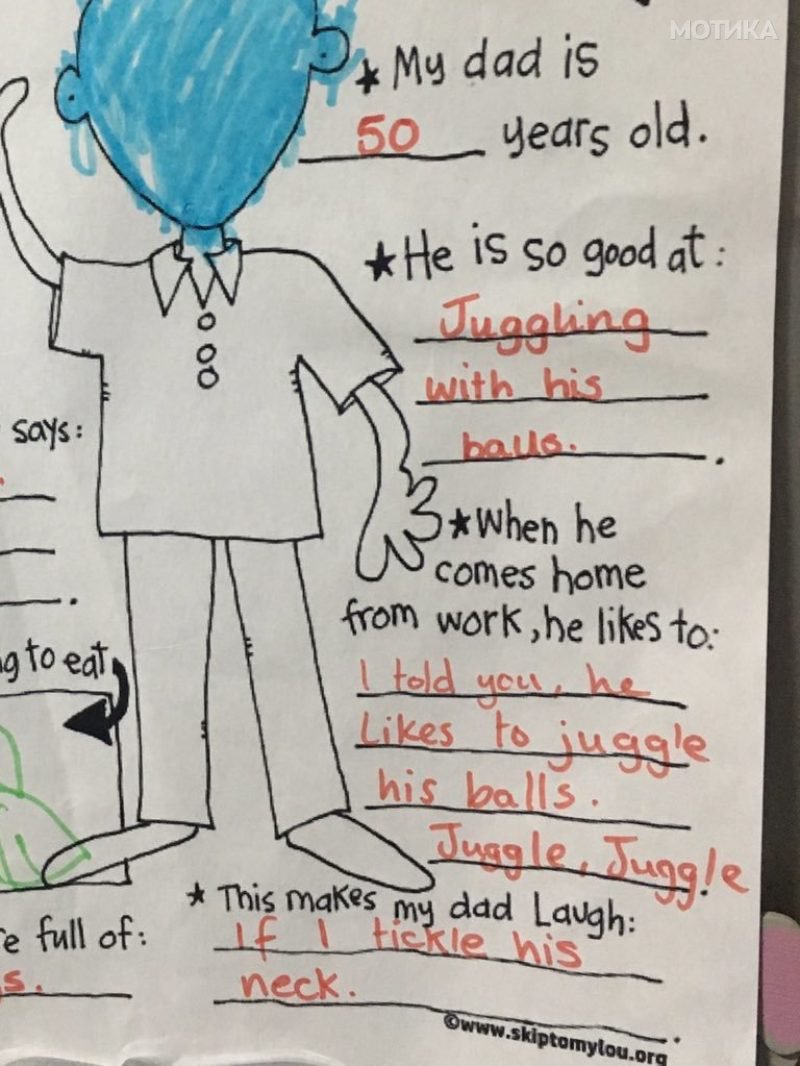 МОТИКА
★ My dad is
50 years old.
★ He is so good at:
Juggling
with his
balls.
says:
★ When he
comes home
from work, he likes to:
g to eat
I told you, he
Likes to juggle
his balls.
Juggle, Juggle
★ This makes my dad Laugh:
e full of:
s.
If I tickle his
neck.
©www.skiptomylou.org